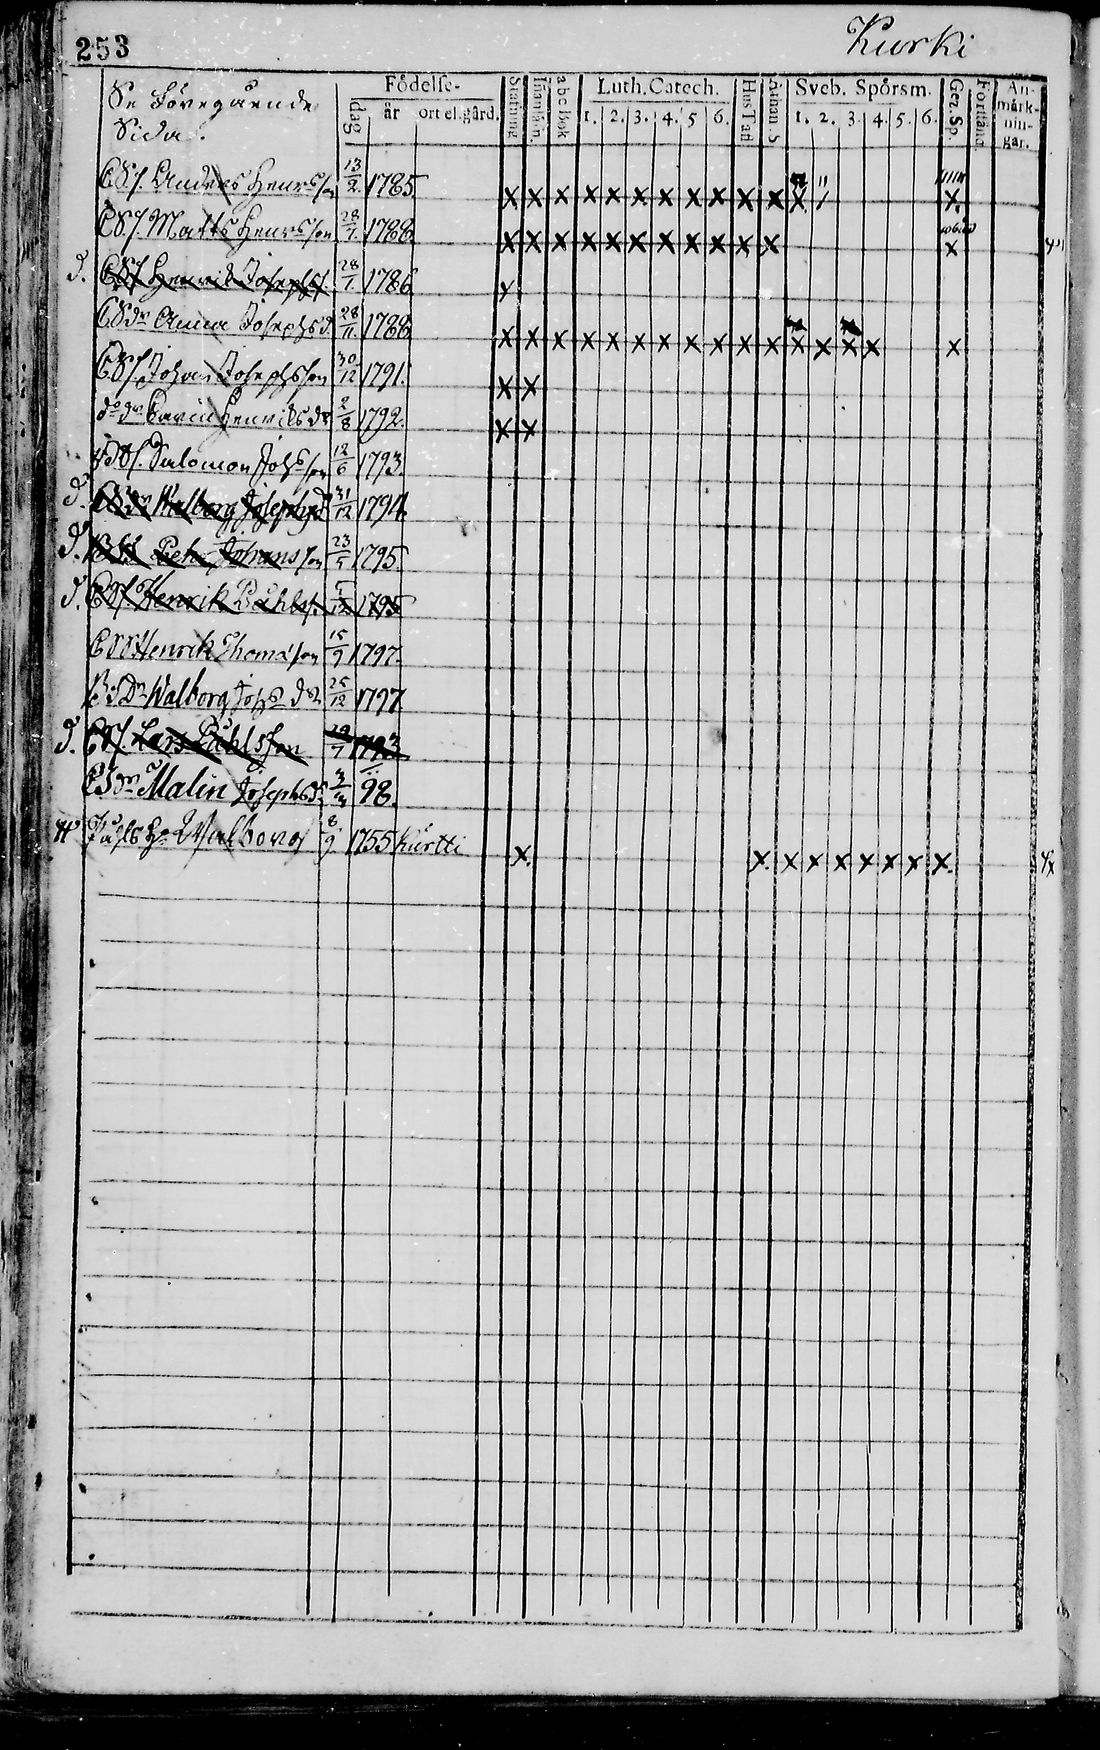 253
Kurki
Se föregående
Sida.
Födelse-
dag
år
ort el. gård.
Stafning
Inanläsn.
abc Bok
Luth. Catech.
1. 2. 3. 4. 5 6.
Hus Tafl
Athan. S
Sveb. Spörsm.
1. 2. 3. 4. 5. 6.
Gez. Sp.
Forstånd
An-
märk-
nin-
gar.
Anders Henrsson 13/2 1785 x x x x x x x x x x x x x
Matts Henrsson 28/7. 1788 x x x x x x x x x x x x
d. Henrik Josephss. 28/1 1786
Anna Josephsd. 28/11. 1788 x x x x x x x x x x x x x x x x
Johan Josephsson 30/12 1791. x x
Carin Henriksdr 2/8 1792. x x
Salomon Johsson 12/6 1793.
d. Walborg Josephsd 31/12 1794.
d. Petr Johansson 23/5 1795
d. Henrik Påhlss. 5/12 1795
Henrik Thomasson 15/9 1797.
Walborg Johsdr 25/12 1797
d. Lars Påhlsson 29/7 1793
Malin Josephsdr 3/3 98.
Walborg 8/9 1755 Kurtti x. x. x x x x x x x.